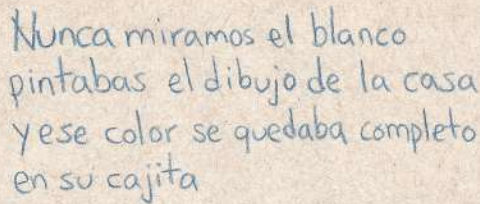 Nunca miramos el blanco
pintabas el dibujo de la casa
y ese color se quedaba completo
en su cajita